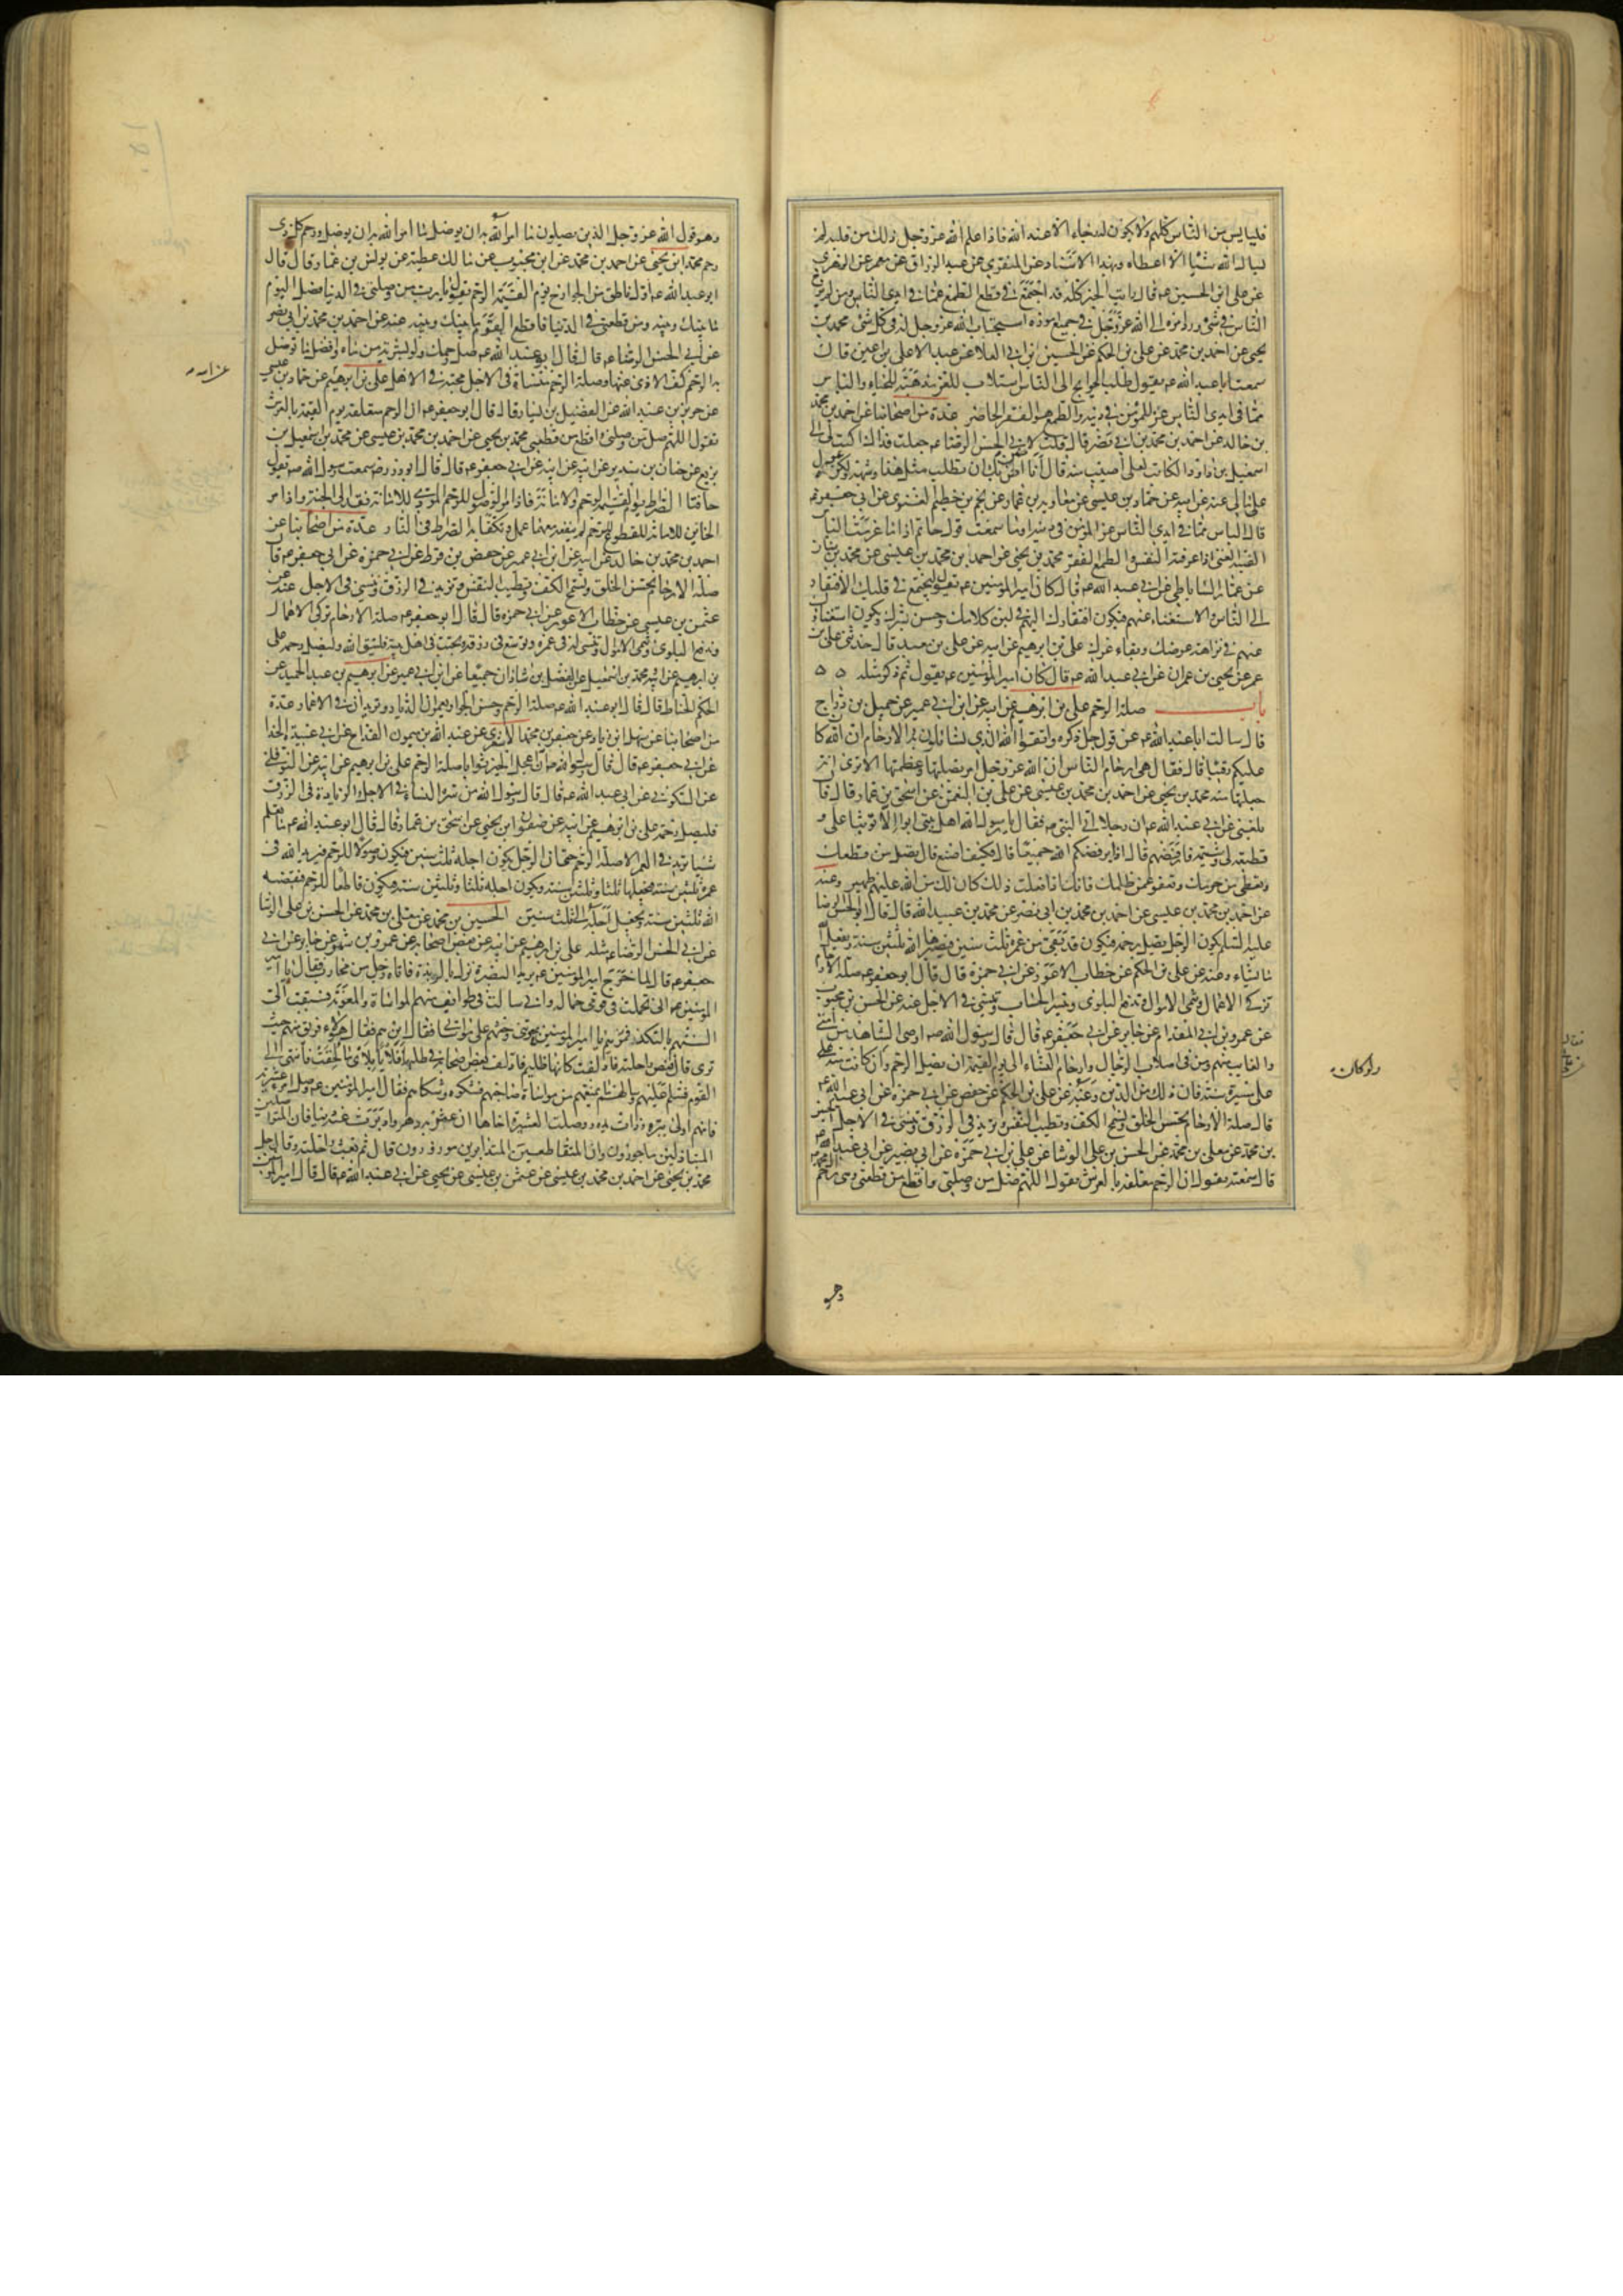 فليايس من الناس كلهم ولا يكون له رجاء الا عند الله فاذا علم الله عز وجل ذلك من قلبه لم
يسال الله شيئا الا اعطاه وبهذا الاسناد عن المنقري عن عبد الرزاق عن معمر عن الزهري
عن علي بن الحسين عم قال رايت الخير كله قد اجتمع في قطع الطمع عما في ايدي الناس ومن لم يرج
الناس في شئ ورد امره الى الله عز وجل في جميع اموره استجاب الله عز وجل له في كل شئ محمد بن
يحيى عن احمد بن محمد عن علي بن الحكم عن الحسين بن ابي العلا عن عبد الاعلى بن اعين قال
سمعت ابا عبد الله عم يقول طلب الحوايج الى الناس استلاب للعز مذهبة للحياء والياس
مما في ايدي الناس عز للمؤمن في دينه والطمع هو الفقر الحاضر عدة من اصحابنا عن احمد بن محمد
بن خالد عن احمد بن محمد بن ابي نصر قال قلت لابي الحسن الرضا عم جعلت فداك اكتب لي الى
اسمعيل بن داود الكاتب لعلي اصيب منه قال انا اضن بك ان تطلب مثل هذا وشبهه ولكن عول
على مالي عنه عن ابيه عن حماد بن عيسى عن معاوية بن عمار عن نجم بن خطيم الغنوي عن ابي جعفر عم
قال الياس مما في ايدي الناس عز المؤمن في دينه اوما سمعت قول حاتم اذا ما عزمت الياس
الفيته الغنى اذا عرفته النفس والطمع الفقر محمد بن يحيى عن احمد بن محمد بن عيسى عن محمد بن سنان
عن عمار الساباطي عن ابي عبد الله عم قال كان امير المؤمنين عم يقول ليجتمع في قلبك الافتقار
الى الناس والاستغناء عنهم فيكون افتقارك اليهم في لين كلامك وحسن بشرك ويكون استغناؤك
عنهم في نزاهة عرضك وبقاء عزك علي بن ابرهيم عن ابيه عن علي بن معبد قال حدثني علي بن
عمر عن يحيى بن عمران عن ابي عبد الله عم قال كان امير المؤمنين عم يقول ثم ذكر مثله ه ه
باب صلة الرحم علي بن ابرهيم عن ابيه عن ابن ابي عمير عن جميل بن دراج
قال سالت ابا عبد الله عم عن قول جل ذكره واتقوا الله الذي تسائلون به والارحام ان الله كان
عليكم رقيبا قال فقال هي ارحام الناس ان الله عز وجل امر بصلتها وعظمها الا ترى انه
جعلها منه محمد بن يحيى عن احمد بن محمد بن عيسى عن علي بن النعمن عن اسحق بن عمار قال قال
بلغني عن ابي عبد الله عم ان رجلا اتى النبي صم فقال يا رسول الله اهل بيتي ابوا الا توثبا علي و
قطيعة لي وشتيمة فارفضهم قال اذا يرفضكم الله جميعا قال فكيف اصنع قال تصل من قطعك
وتعطي من حرمك وتعفو عمن ظلمك فانك اذا فعلت ذلك كان لك من الله عليهم ظهير وعنه
عن احمد بن محمد بن عيسى عن احمد بن محمد بن ابي نصر عن محمد بن عبيد الله قال قال ابو الحسن الرضا
عليه السلم يكون الرجل يصل رحمه فيكون قد بقي من عمره ثلث سنين فيصيرها الله ثلثين سنة ويفعل الله
ما يشاء وعنه عن علي بن الحكم عن خطاب الاعور عن ابي حمزة قال قال ابو جعفر عم صلة الارحام
تزكي الاعمال وتنمي الاموال وتدفع البلوى وتيسر الحساب وتنسئ في الاجل عنه عن الحسن بن محبوب
عن عمرو بن ابي المقدام عن جابر عن ابي جعفر عم قال قال رسول الله صم اوصي الشاهد من امتي
والغايب منهم ومن في اصلاب الرجال وارحام النساء الى يوم القيمة ان يصل الرحم وان كانت منه على
مسيرة سنة فان ذلك من الدين وعنه عن علي بن الحكم عن حفص عن ابي حمزة عن ابي عبد الله عم
قال صلة الارحام تحسن الخلق وتسمح الكف وتطيب النفس وتزيد في الرزق وتنسئ في الاجل الحسين
بن محمد عن معلى بن محمد عن الحسن بن علي الوشا عن علي بن ابي حمزة عن ابي بصير عن ابي عبد الله عم
قال سمعته يقول ان الرحم معلقة بالعرش يقول اللهم صل من وصلني واقطع من قطعني وهي رحم ال محمد
ولو كان
وهو
وهو قول الله عز وجل الذين يصلون ما امر الله به ان يوصل ورحم كل ذي
رحم محمد بن يحيى عن احمد بن محمد عن ابن محبوب عن مالك عطية عن يونس بن عمار قال قال
ابو عبد الله عم اول ناطق من الجوارح يوم القيمة الرحم تقول يا رب من وصلني في الدنيا فصل اليوم
ما بينك وبينه ومن قطعني في الدنيا فاقطع اليوم ما بينك وبينه عنه عن احمد بن محمد بن ابي نصر
عن ابي الحسن الرضا عم قال قال ابو عبد الله عم صل رحمك ولو بشربة من ماء وافضل ما توصل
به الرحم كف الاذى عنها وصلة الرحم منساة في الاجل محبة في الاهل علي بن ابرهيم عن حماد بن عيسى
عن حريز بن عبد الله عن الفضيل بن يسار قال قال ابو جعفر عم ان الرحم معلقة يوم القيمة بالعرش
تقول اللهم صل من وصلني واقطع من قطعني محمد بن يحيى عن احمد بن محمد بن عيسى عن محمد بن اسمعيل بن
بزيع عن حنان بن سدير عن ابيه عن ابي جعفر عم قال قال ابو ذر رض سمعت رسول الله صم يقول
حافتا الصراط يوم القيمة الرحم والامانة فاذا مر الوصول للرحم المؤدي للامانة نفذ الى الجنة واذا مر
الخاين للامانة القطوع للرحم لم ينفعه معهما عمل وتكفأ به الصراط في النار عدة من اصحابنا عن
احمد بن محمد بن خالد عن ابيه عن ابن ابي عمير عن حفص بن قرط عن ابي حمزة عن ابي جعفر عم قال
صلة الارحام تحسن الخلق وتسمح الكف وتطيب النفس وتزيد في الرزق وتنسئ في الاجل عنه عن
عثمن بن عيسى عن خطاب الاعور عن ابي حمزة قال قال ابو جعفر عم صلة الارحام تزكي الاعمال
وتدفع البلوى وتنمي الاموال وتنسئ له في عمره وتوسع في رزقه وتحبب في اهل بيته فليتق الله وليصل رحمه علي
بن ابرهيم عن ابيه محمد بن اسمعيل عن الفضل بن شاذان جميعا عن ابن ابي عمير عن ابرهيم بن عبد الحميد عن
الحكم الحناط قال قال ابو عبد الله عم صلة الرحم وحسن الجوار يعمران الديار ويزيدان في الاعمار عدة
من اصحابنا عن سهل بن زياد عن جعفر بن محمد الاشعري عن عبد الله بن ميمون القداح عن ابي عبيدة الحذا
عن ابي جعفر عم قال قال رسول الله صم ان اعجل الخير ثوابا صلة الرحم علي بن ابرهيم عن ابيه عن النوفلي
عن السكوني عن ابي عبد الله عم قال قال رسول الله من سره النساء في الاجل والزيادة في الرزق
فليصل رحمه علي بن ابرهيم عن ابيه عن صفوان بن يحيى عن اسحق بن عمار قال قال ابو عبد الله عم ما نعلم
شيئا يزيد في العمر الا صلة الرحم حتى ان الرجل يكون اجله ثلث سنين فيكون وصولا للرحم فيزيد الله في
عمره ثلثين سنة فيجعلها ثلثا وثلثين سنة ويكون اجله ثلثا وثلثين سنة فيكون قاطعا للرحم فينقصه
الله ثلثين سنة ويجعل اجله الى ثلث سنين الحسين بن محمد عن معلى بن محمد عن الحسن بن علي الوشا
عن ابي الحسن الرضا عم مثله علي بن ابرهيم عن ابيه عن بعض اصحابه عن عمرو بن شمر عن جابر عن ابي
جعفر عم قال لما خرج امير المؤمنين عم يريد البصرة نزل بالربذة فاتاه رجل من محارب فقال يا امير
المؤمنين عم اني تحملت في قومي حمالة واني سالت في طوايف منهم المواساة والمعونة فسبقت الي
السنتهم بالنكد فمرهم يا امير المؤمنين بمعونتي وحثهم على مواساتي فقال اين هم فقال هؤلاء فريق منهم حيث
ترى قال فنص راحلته فادلفت كانها ظليم فادلف بعض اصحابه في طلبها فلايا بلاي ما لحقت فانتهى الى
القوم فسلم عليهم وسالهم ما يمنعهم من مواساة صاحبهم فشكوه وشكاهم فقال امير المؤمنين عم وصل امرؤ عشيرته
فانهم اولى ببره وذات يده ووصلت العشيرة اخاها ان عثر به دهر وادبرت عنه دنيا فان المتواصلين
المتباذلين ماجورون وان المتقاطعين المتدابرين موزورون قال ثم بعث راحلته وقال حل
محمد بن يحيى عن احمد بن محمد بن عيسى عن عثمن بن عيسى عن يحيى عن ابي عبد الله عم قال قال امير المؤمنين